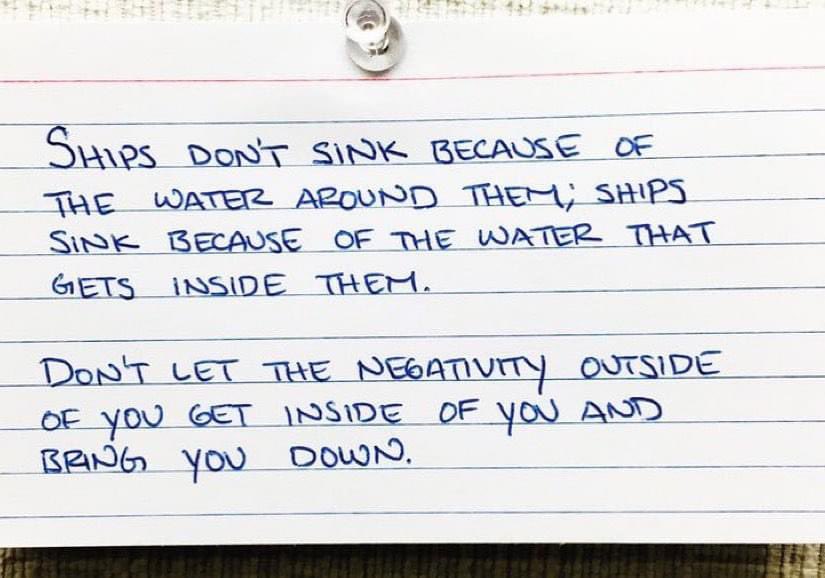 SHIPS DON'T SINK BECAUSE OF
THE WATER AROUND THEM; SHIPS
SINK BECAUSE OF THE WATER THAT
GETS INSIDE THEM.
DON'T LET THE NEGATIVITY OUTSIDE
OF YOU GET INSIDE OF YOU AND
BRING YOU DOWN.